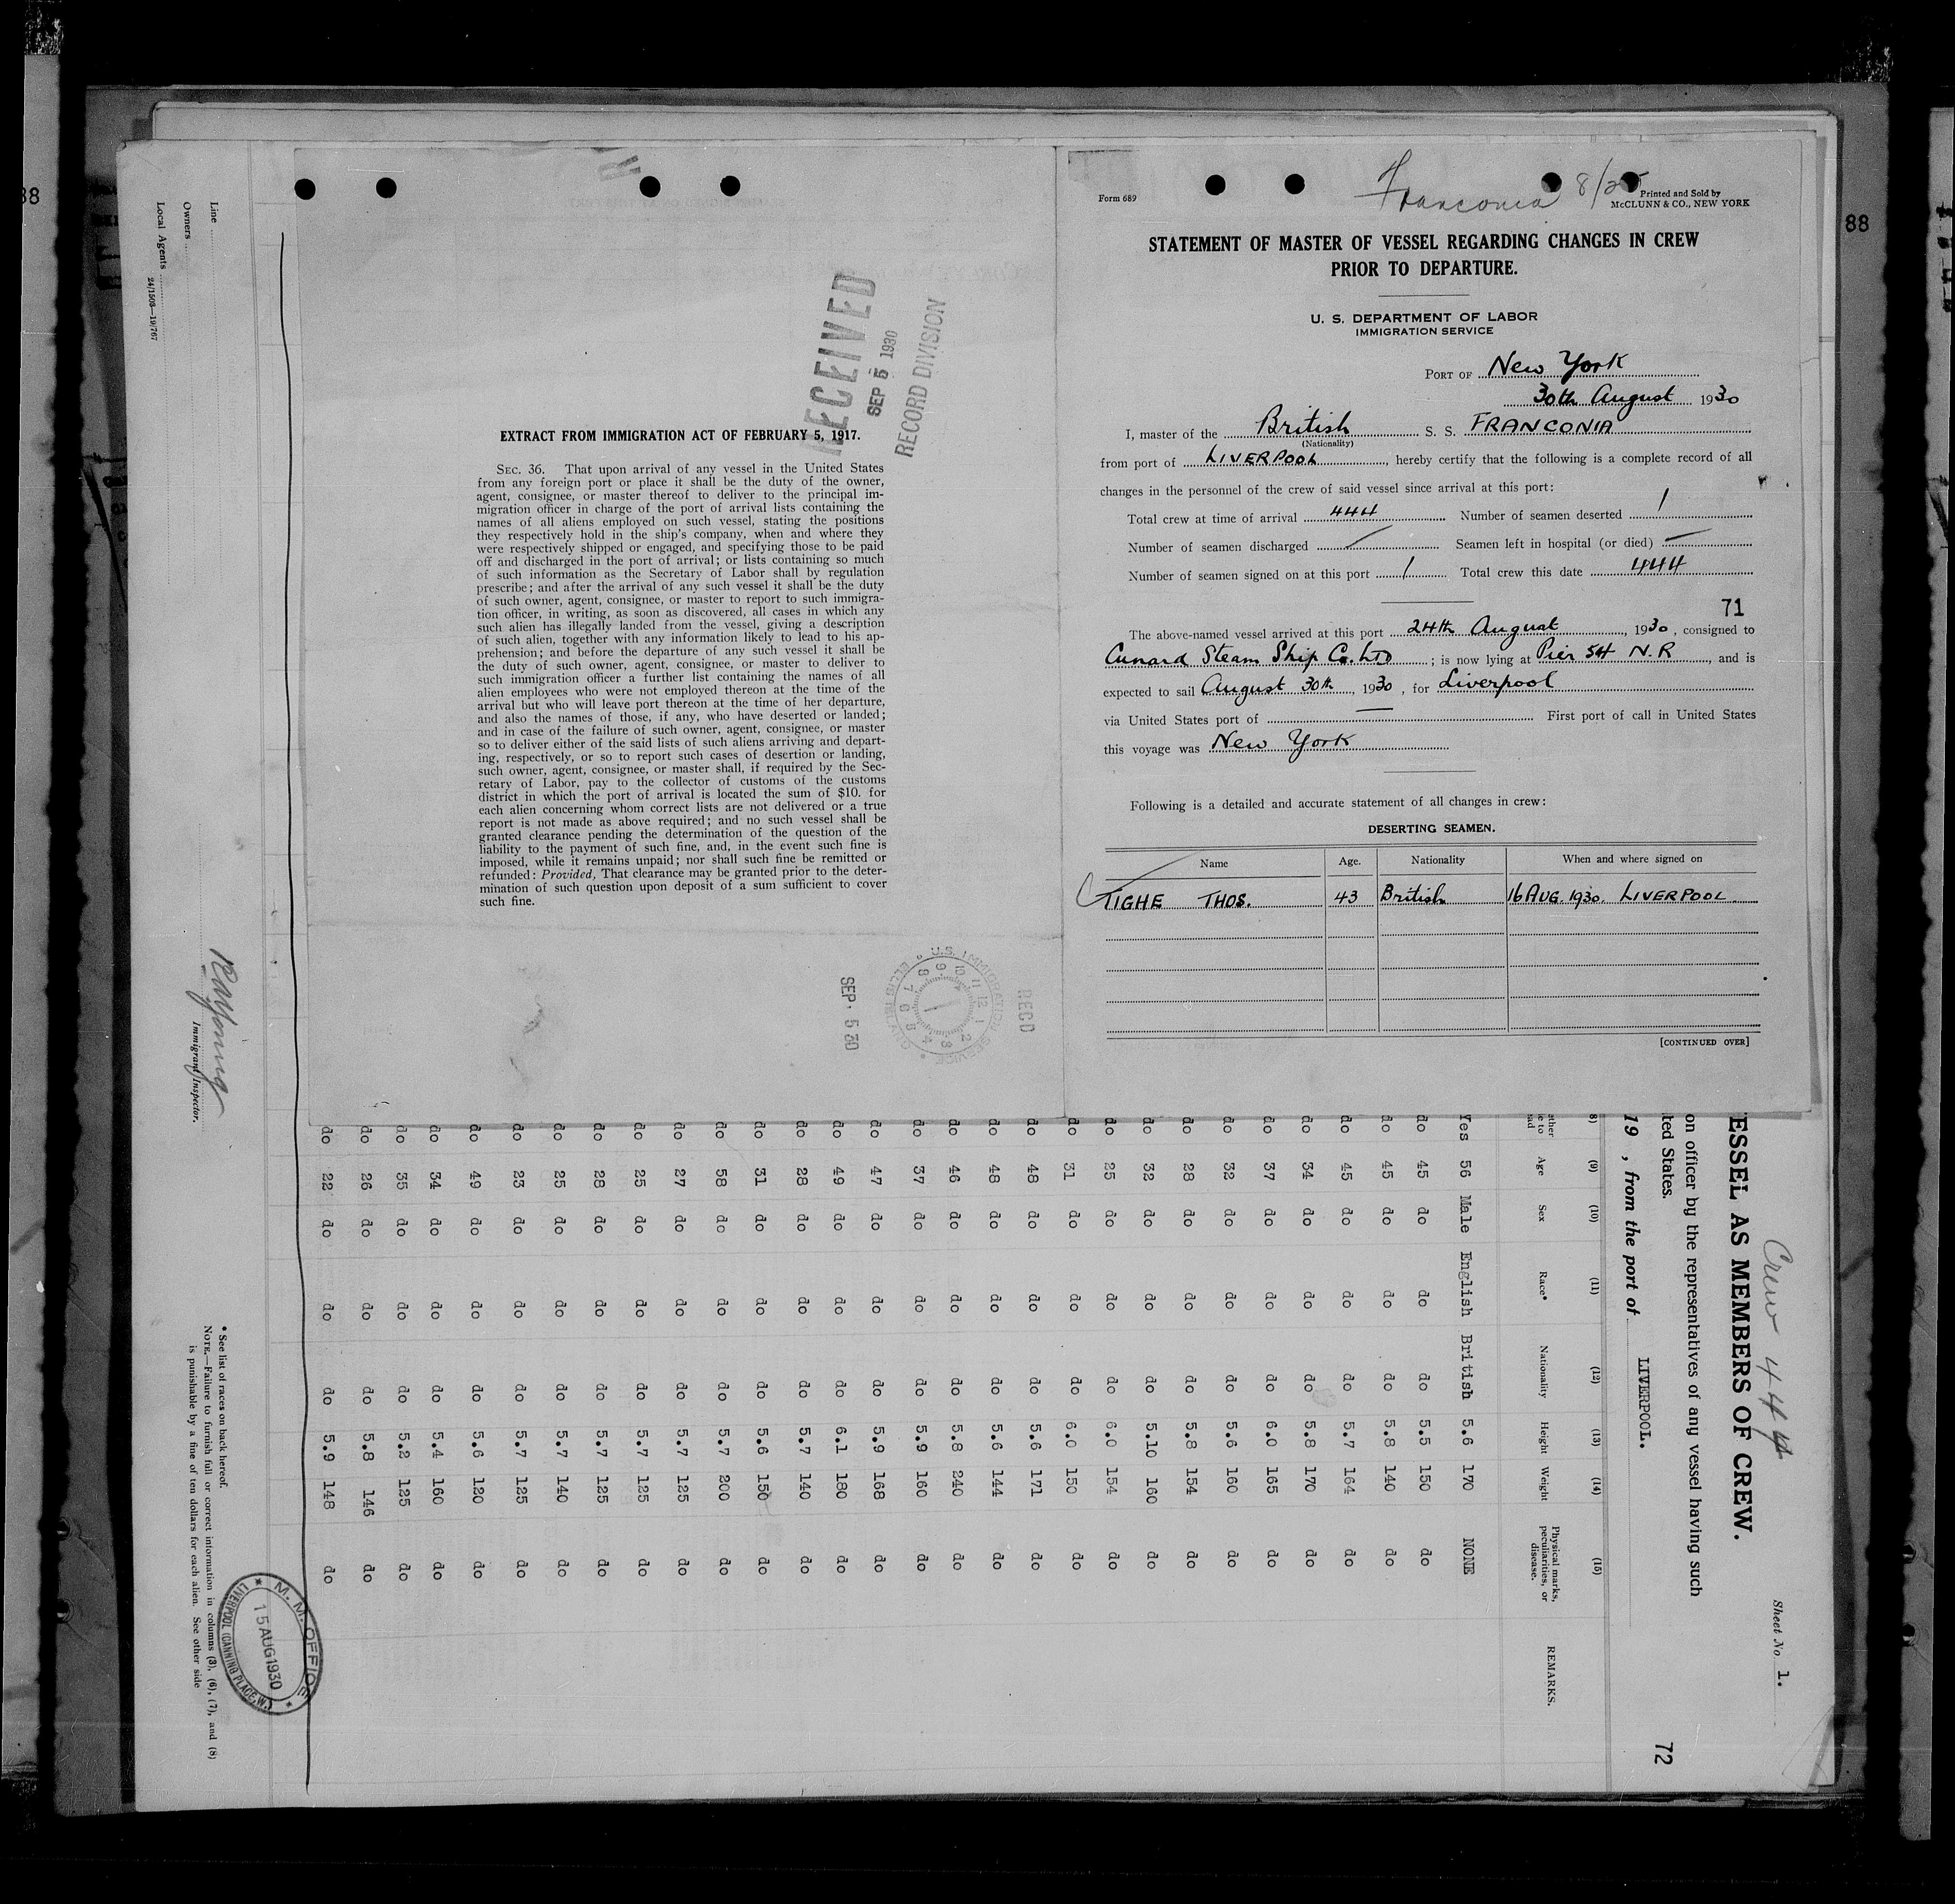 88
88
Form 689
Franconia 8/25
Printed and Sold by
McCLUNN & CO., NEW YORK
STATEMENT OF MASTER OF VESSEL REGARDING CHANGES IN CREW
PRIOR TO DEPARTURE.
U. S. DEPARTMENT OF LABOR
IMMIGRATION SERVICE
PORT OF New York
30th August 1930
I, master of the British S. S. FRANCONIA
(Nationality)
from port of LIVERPOOL, hereby certify that the following is a complete record of all
changes in the personnel of the crew of said vessel since arrival at this port:
Total crew at time of arrival 444 Number of seamen deserted 1
Number of seamen discharged — Seamen left in hospital (or died) —
Number of seamen signed on at this port 1 Total crew this date 444
71
The above-named vessel arrived at this port 24th August, 1930, consigned to
Cunard Steam Ship Co. Ltd; is now lying at Pier 54 N.R, and is
expected to sail August 30th, 1930, for Liverpool
via United States port of — First port of call in United States
this voyage was New York
Following is a detailed and accurate statement of all changes in crew:
DESERTING SEAMEN.
Name Age. Nationality When and where signed on
TIGHE THOS. 43 British 16 AUG. 1930. LIVERPOOL
[CONTINUED OVER]
RECEIVED
SEP 5 1930
RECORD DIVISION
EXTRACT FROM IMMIGRATION ACT OF FEBRUARY 5, 1917.
SEC. 36. That upon arrival of any vessel in the United States
from any foreign port or place it shall be the duty of the owner,
agent, consignee, or master thereof to deliver to the principal im-
migration officer in charge of the port of arrival lists containing the
names of all aliens employed on such vessel, stating the positions
they respectively hold in the ship's company, when and where they
were respectively shipped or engaged, and specifying those to be paid
off and discharged in the port of arrival; or lists containing so much
of such information as the Secretary of Labor shall by regulation
prescribe; and after the arrival of any such vessel it shall be the duty
of such owner, agent, consignee, or master to report to such immigra-
tion officer, in writing, as soon as discovered, all cases in which any
such alien has illegally landed from the vessel, giving a description
of such alien, together with any information likely to lead to his ap-
prehension; and before the departure of any such vessel it shall be
the duty of such owner, agent, consignee, or master to deliver to
such immigration officer a further list containing the names of all
alien employees who were not employed thereon at the time of the
arrival but who will leave port thereon at the time of her departure,
and also the names of those, if any, who have deserted or landed;
and in case of the failure of such owner, agent, consignee, or master
so to deliver either of the said lists of such aliens arriving and depart-
ing, respectively, or so to report such cases of desertion or landing,
such owner, agent, consignee, or master shall, if required by the Sec-
retary of Labor, pay to the collector of customs of the customs
district in which the port of arrival is located the sum of $10. for
each alien concerning whom correct lists are not delivered or a true
report is not made as above required; and no such vessel shall be
granted clearance pending the determination of the question of the
liability to the payment of such fine, and, in the event such fine is
imposed, while it remains unpaid; nor shall such fine be remitted or
refunded: Provided, That clearance may be granted prior to the deter-
mination of such question upon deposit of a sum sufficient to cover
such fine.
RECD
U.S. IMMIGRATION SERVICE
SEP. 5 30
Crew 444
Sheet No 1.
ESSEL AS MEMBERS OF CREW.
on officer by the representatives of any vessel having such
ted States.
72
19 , from the port of LIVERPOOL.
(9) (10) (11) (12) (13) (14) (15)
Age Sex Race* Nationality Height Weight Physical marks, peculiarities, or disease. REMARKS.
Yes 56 Male English British 5.6 170 NONE
do 45 do do do 5.5 150 do
do 45 do do do 5.8 140 do
do 45 do do do 5.7 164 do
do 34 do do do 5.8 170 do
do 37 do do do 6.0 165 do
do 32 do do do 5.6 160 do
do 28 do do do 5.8 154 do
do 32 do do do 5.10 160 do
do 25 do do do 6.0 154 do
do 31 do do do 6.0 150 do
do 48 do do do 5.6 171 do
do 48 do do do 5.6 144 do
do 46 do do do 5.8 240 do
do 37 do do do 5.9 160 do
do 47 do do do 5.9 168 do
do 49 do do do 6.1 180 do
do 28 do do do 5.7 140 do
do 31 do do do 5.6 150 do
do 58 do do do 5.7 200 do
do 27 do do do 5.7 125 do
do 25 do do do 5.7 125 do
do 28 do do do 5.7 125 do
do 25 do do do 5.7 140 do
do 23 do do do 5.7 125 do
do 49 do do do 5.6 120 do
do 34 do do do 5.4 160 do
do 35 do do do 5.2 125 do
do 26 do do do 5.8 146 do
do 22 do do do 5.9 148 do
M. M. OFFICE
15 AUG 1930
LIVERPOOL (CANNING PLACE, W.)
Line
Owners
Local Agents
24/1508—19/767
Immigrant Inspector.
* See list of races on back hereof.
NOTE.—Failure to furnish full or correct information in columns (3), (6), (7), and (8)
is punishable by a fine of ten dollars for each alien. See other side